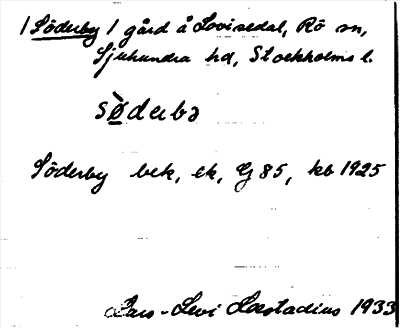 / Söderby / gård å Lovisedal, Rö sn,
Sjuhundra hd, Stockholms l.
sø̀derbə
Söderby bek, ek, G 85, kb 1925
Lars-Levi Læstadius 1933